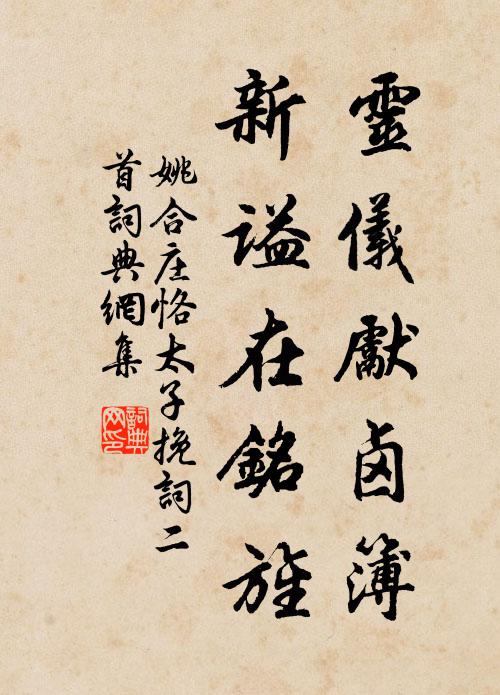 靈儀獻鹵簿
新謚在銘旌
姚合庄恪太子挽詞二
首詞典網集
詞典網印